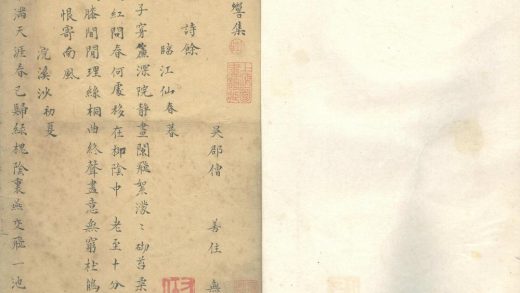 響集
吳郡僧　善住　無
詩餘
臨江仙春暮
子穿簾深院静晝闌飛絮濛〻砌苔柔
紅問春何處移在柳陰中　老至十分
膝間閒理絲桐曲終聲盡意無窮杜鵑
恨寄南風
浣溪沙初夏
滿天涯春已歸綠槐陰裏燕交飛一池